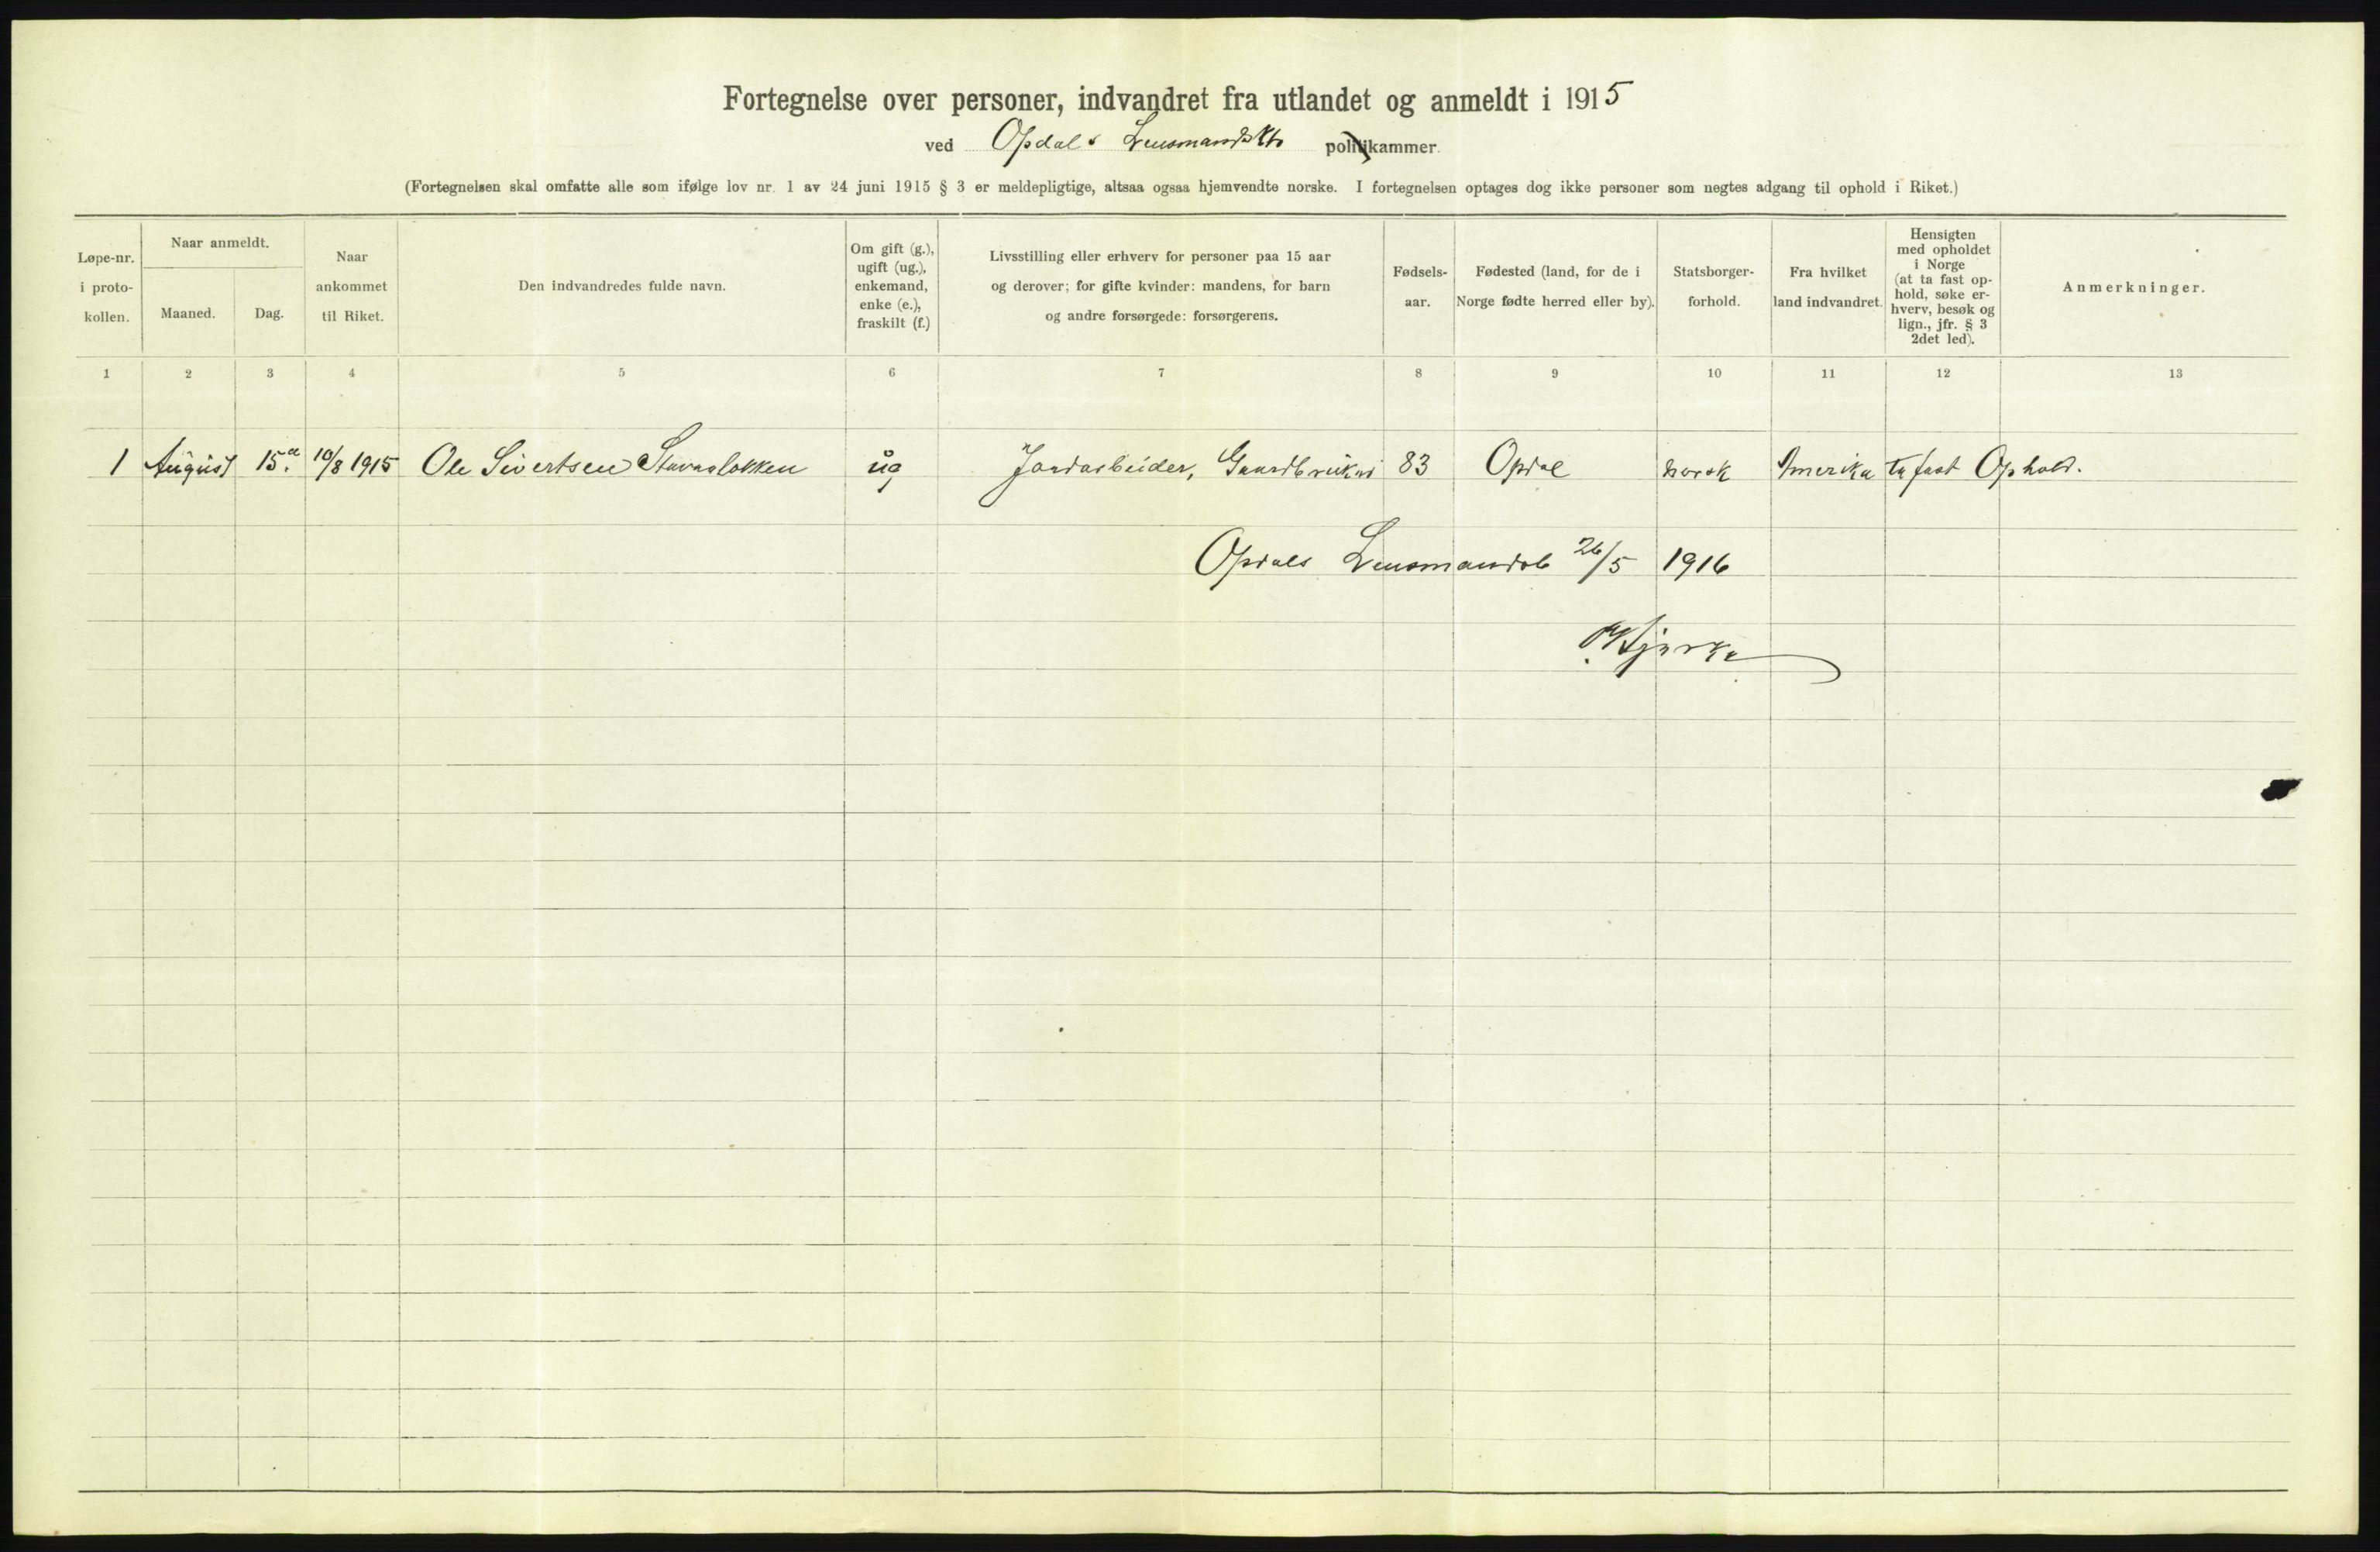 Fortegnelse over personer, indvandret fra utlandet og anmeldt i 1915
ved Opdals Lensmandskt politikammer.
(Fortegnelsen skal omfatte alle som ifølge lov nr. 1 av 24 juni 1915 § 3 er meldepligtige, altsaa ogsaa hjemvendte norske. I fortegnelsen optages dog ikke personer som negtes adgang til ophold i Riket.)
Løpe-nr.
i proto-
kollen.
Naar anmeldt.
Maaned.
Dag.
Naar
ankommet
til Riket.
Den indvandredes fulde navn.
Om gift (g.),
ugift (ug.),
enkemand,
enke (e.),
fraskilt (f.)
Livsstilling eller erhverv for personer paa 15 aar
og derover; for gifte kvinder: mandens, for barn
og andre forsørgede: forsørgerens.
Fødsels-
aar.
Fødested (land, for de i
Norge fødte herred eller by).
Statsborger-
forhold.
Fra hvilket
land indvandret.
Hensigten
med opholdet
i Norge
(at ta fast op-
hold, søke er-
hverv, besøk og
lign., jfr. § 3
2det led).
Anmerkninger.
1 2 3 4 5 6 7 8 9 10 11 12 13
1 August 15. 10/8 1915 Ole Sivertsen Stavaslökken ug Jordarbeider, Gaardbruker 83 Opdal norsk Amerika ta fast Ophold.
Opdals Lensmandsb 26/5 1916